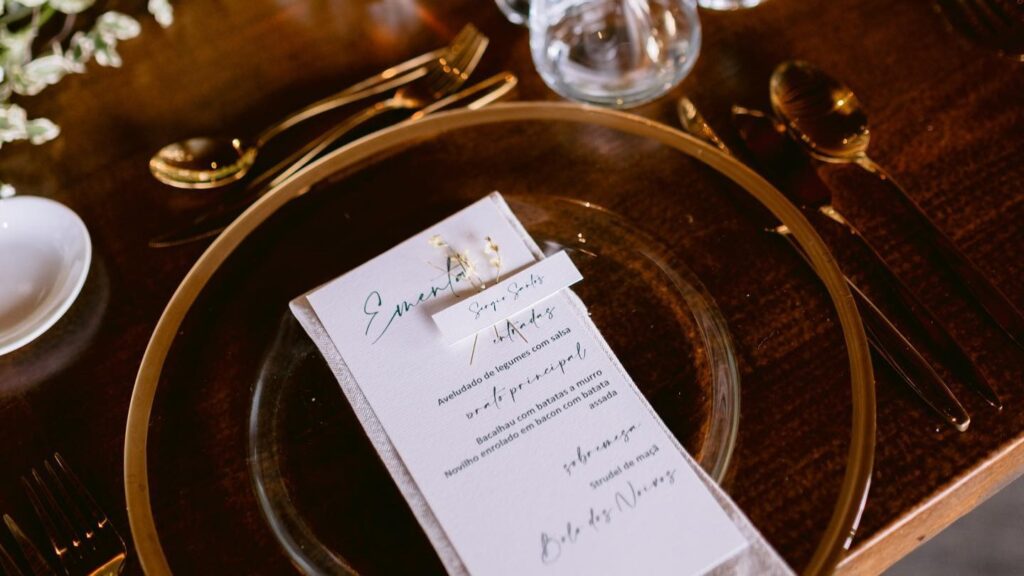 Ementa
Sérgio Santos
entradas
Aveludado de legumes com salsa
prato principal
Bacalhau com batatas a murro
Novilho enrolado em bacon com batata
assada
sobremesa
Strudel de maçã
Bolo dos Noivos